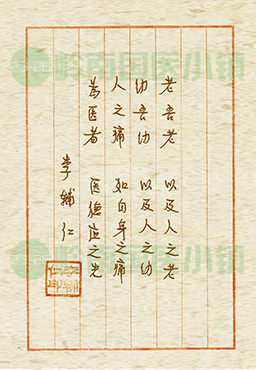 老吾老 以及人之老
幼吾幼 以及人之幼
人之痛 如自身之痛
为医者 医德应之先
李辅仁
岭南国医小镇
岭南国医小镇